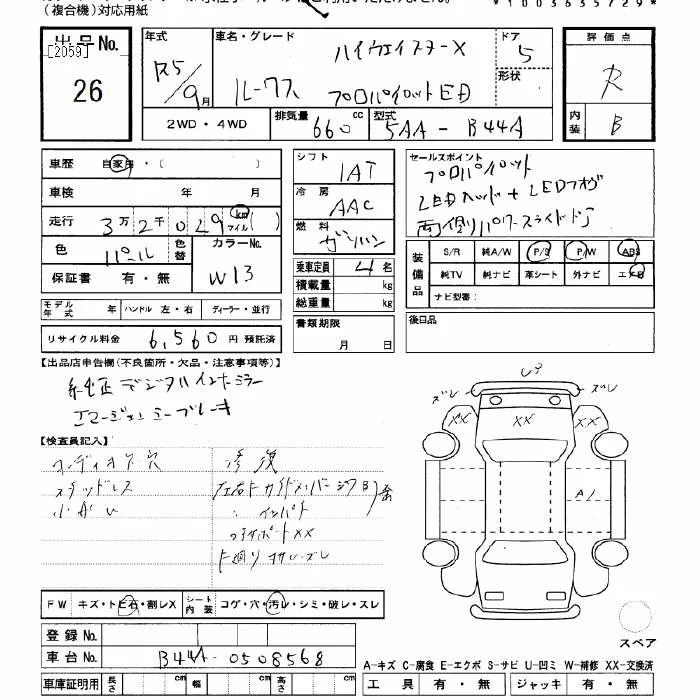 (複合機)対応用紙
*1003635729*
出品No.
[2059]
26
年式 R5/9月
車名・グレード ハイウェイスターX
ルークス プロパイロットED
ドア 5
形状
2WD・4WD
排気量 660 cc
型式 5AA-B44A
評価点
R
内装 B
車歴 自家用・( )
車検 年 月
走行 3万2千029 km マイル( )
色 パール 色替 カラーNo. W13
保証書 有・無
モデル年式 年 ハンドル 左・右 ディーラー・並行
リサイクル料金 6,560 円 預託済
シフト IAT
冷房 AAC
燃料 ガソリン
乗車定員 4 名
積載量 kg
総重量 kg
書類期限
月 日
セールスポイント
プロパイロット
LEDヘッド+LEDフォグ
両側パワースライドドア
装備品 S/R 純A/W P/S P/W ABS
純TV 純ナビ 革シート 外ナビ エアB
ナビ型番:
後日品
【出品店申告欄(不良箇所・欠品・注意事項等)】
純正デジタルインナーミラー
エマージェンシーブレーキ
【検査員記入】
オーディオ下穴
スタッドレス
小がい
修復
インパネ
下廻りサビ,ズレ
ズレ
ズレ
XX
XX
XX
A1
FW キズ・トビ石・割レX シート内装 コゲ・穴・汚レ・シミ・破レ・スレ
登録No.
車台No. B44A-0508568
車庫証明用 長さ cm 幅 cm 高さ cm
スペア
A-キズ C-腐食 E-エクボ S-サビ U-凹ミ W-補修 XX-交換済
工具 有・無 ジャッキ 有・無